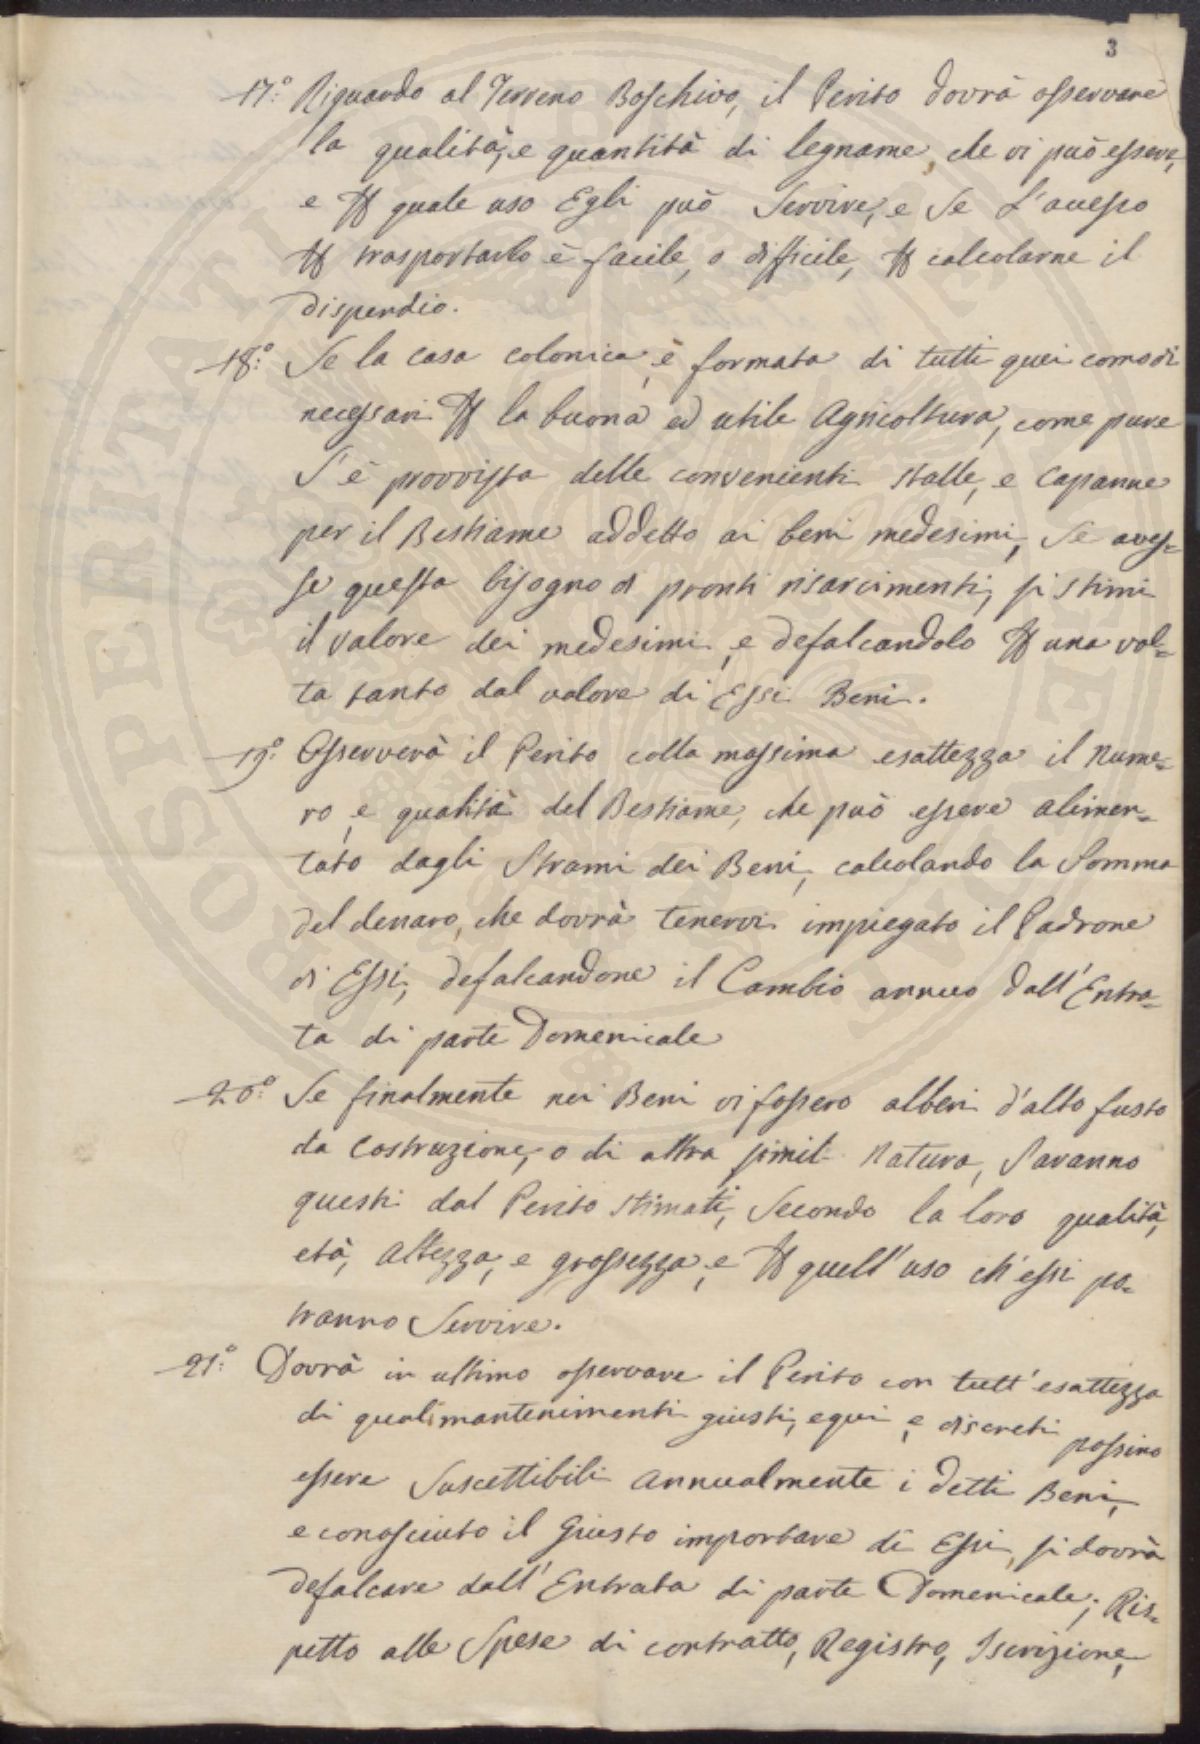 3
17.° Riguardo al Terreno Boschivo, il Perito dovrà osservare
la qualità, e quantità di legname, che vi può essere,
e per quale uso Egli può Servire, e Se l'avesso
per trasportarlo è facile, o difficile, per calcolarne il
dispendio.
18.° Se la casa colonica, è formata di tutti quei comodi
necessari per la buona ed utile Agricoltura, come pure
S'è provvista delle convenienti stalle, e Capanne
per il Bestiame addetto ai beni medesimi, Se aves=
se questa bisogno di pronti risarcimenti, si stimi
il valore dei medesimi, e defalcandolo per una vol=
ta tanto dal valore di Essi Beni.
19.° Osserverà il Perito colla massima esattezza il nume=
ro, e qualità del Bestiame, che può essere alimen=
tato dagli Strami dei Beni, calcolando la Somma
del denaro, che dovrà tenervi impiegato il Padrone
di Essi, defalcandone il Cambio annuo dall'Entra=
ta di parte Domenicale
20.° Se finalmente nei Beni vi fossero alberi d'alto fusto
da Costruzione, o di altra simil natura, Saranno
questi dal Perito stimati, Secondo la loro qualità,
età, altezza, e grossezza, e per quell'uso ch'essi po=
tranno Servire.
21.° Dovrà in ultimo osservare il Perito con tutt'esattezza
di quali mantenimenti giusti, equi, e discreti possino
essere Suscettibili annualmente i detti Beni,
e conosciuto il Giusto importare di Essi, si dovrà
defalcare dall'Entrata di parte Domenicale; Ris=
petto alle Spese di contratto, Registro, Iscrizione,
PROSPERITATI PUBLICAE